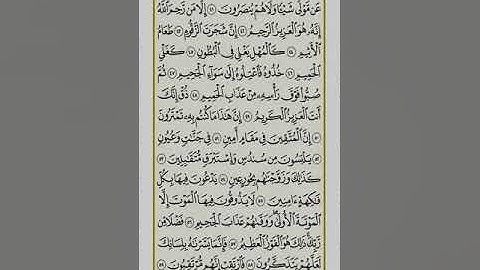 عَن مَّوْلًى شَيْـًٔا وَلَا هُمْ يُنصَرُونَ ٤١ إِلَّا مَن رَّحِمَ ٱللَّهُ
إِنَّهُۥ هُوَ ٱلْعَزِيزُ ٱلرَّحِيمُ ٤٢ إِنَّ شَجَرَتَ ٱلزَّقُّومِ ٤٣ طَعَامُ
ٱلْأَثِيمِ ٤٤ كَٱلْمُهْلِ يَغْلِى فِى ٱلْبُطُونِ ٤٥ كَغَلْىِ
ٱلْحَمِيمِ ٤٦ خُذُوهُ فَٱعْتِلُوهُ إِلَىٰ سَوَآءِ ٱلْجَحِيمِ ٤٧ ثُمَّ
صُبُّوا۟ فَوْقَ رَأْسِهِۦ مِنْ عَذَابِ ٱلْحَمِيمِ ٤٨ ذُقْ إِنَّكَ
أَنتَ ٱلْعَزِيزُ ٱلْكَرِيمُ ٤٩ إِنَّ هَٰذَا مَا كُنتُم بِهِۦ تَمْتَرُونَ
٥٠ إِنَّ ٱلْمُتَّقِينَ فِى مَقَامٍ أَمِينٍ ٥١ فِى جَنَّٰتٍ وَعُيُونٍ
٥٢ يَلْبَسُونَ مِن سُندُسٍ وَإِسْتَبْرَقٍ مُّتَقَٰبِلِينَ ٥٣
كَذَٰلِكَ وَزَوَّجْنَٰهُم بِحُورٍ عِينٍ ٥٤ يَدْعُونَ فِيهَا بِكُلِّ
فَٰكِهَةٍ ءَامِنِينَ ٥٥ لَا يَذُوقُونَ فِيهَا ٱلْمَوْتَ إِلَّا
ٱلْمَوْتَةَ ٱلْأُولَىٰ وَوَقَىٰهُمْ عَذَابَ ٱلْجَحِيمِ ٥٦ فَضْلًا مِّن
رَّبِّكَ ذَٰلِكَ هُوَ ٱلْفَوْزُ ٱلْعَظِيمُ ٥٧ فَإِنَّمَا يَسَّرْنَٰهُ بِلِسَانِكَ
لَعَلَّهُمْ يَتَذَكَّرُونَ ٥٨ فَٱرْتَقِبْ إِنَّهُم مُّرْتَقِبُونَ ٥٩